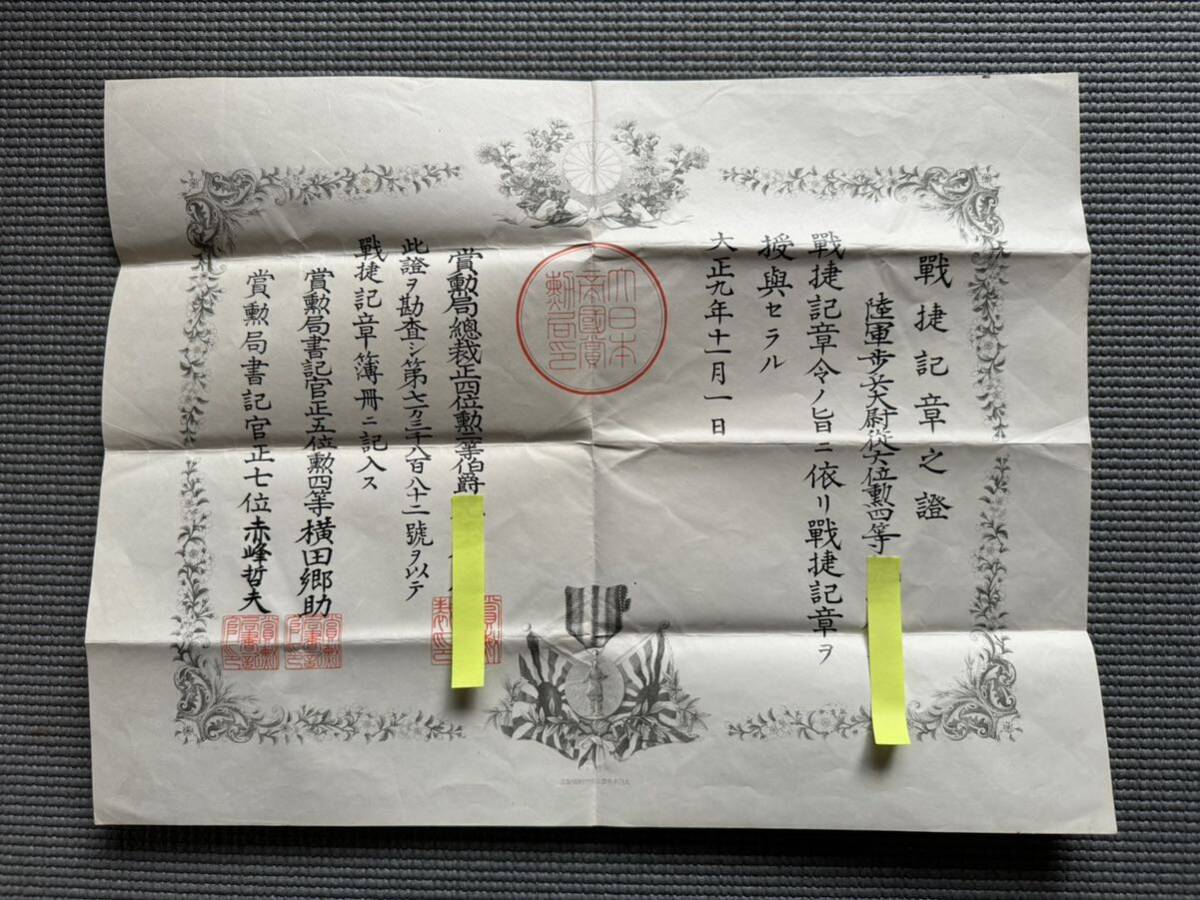 戰捷記章之證
陸軍步兵大尉從六位勳四等
戰捷記章令ノ旨ニ依リ戰捷記章ヲ
授與セラル
大正九年十一月一日
大日本帝國賞勳局印
賞勳局總裁正四位勳二等伯爵
此證ヲ勘査シ第七万三千八百八十二號ヲ以テ
戰捷記章簿冊ニ記入ス
賞勳局書記官正五位勳四等橫田鄉助
賞勳局書記官正七位赤峰哲夫